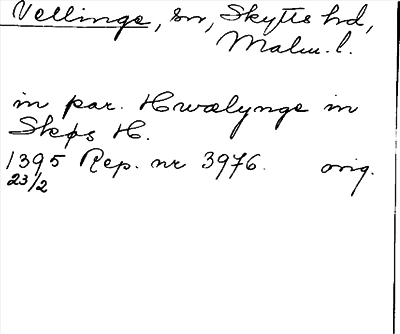 Vellinge, sn, Skytts hd,
Malm. l.
in par. Hwælynge in
Skøs H.
1395 Rep. nr 3976. orig.
23/2